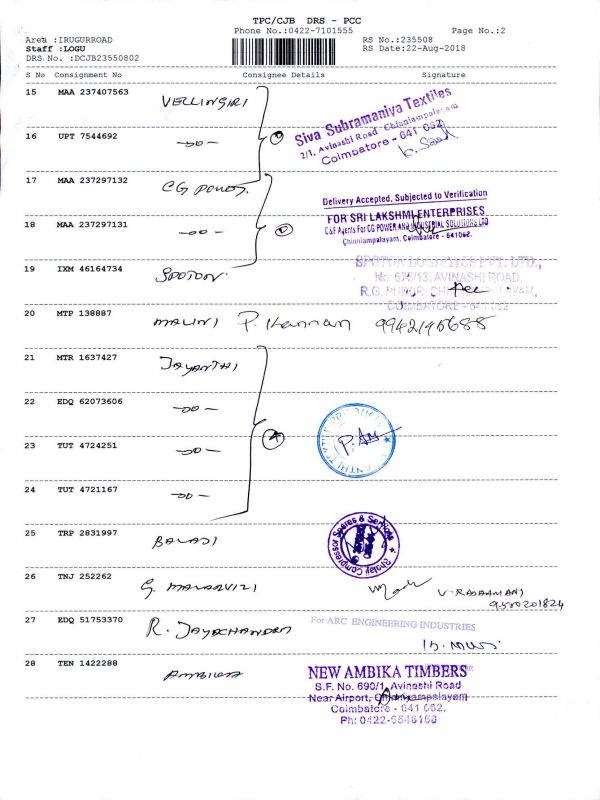 TPC/CJB DRS - PCC
Area :IRUGURROAD Phone No.:0422-7101555 RS No.:235508 Page No.:2
Staff :LOGU RS Date:22-Aug-2018
DRS No. :DCJB23550802
S No Consignment No Consignee Details Signature
15 MAA 237407563 VELLINGIRI
Siva Subramaniya Textiles
2/1, Avinashi Road, Chinniampalayam
Coimbatore - 641 062
16 UPT 7544692 -do-
17 MAA 237297132 CG POWER.
Delivery Accepted, Subjected to Verification
FOR SRI LAKSHMI ENTERPRISES
C&F Agents For CG POWER AND INDUSTRIAL SOLUTIONS LTD
Chinniampalayam, Coimbatore - 641062.
18 MAA 237297131 -do-
19 IXM 46164734 SPOTON.
SPOTON LOGISTICS PVT. LTD.,
No. 676/13, AVINASHI ROAD,
COIMBATORE - 641 062
20 MTP 138887 MALINI P. Kannan 9942195688
21 MTR 1637427 JAYANTHI
22 EDQ 62073606 -do-
23 TUT 4724251 -do-
24 TUT 4721167 -do-
25 TRP 2831997 BALAJI
Balaji Compressor Spares & Services
26 TNJ 252262 G. MALARVIZI
V. RADAMANI
9500201824
27 EDQ 51753370 R. JAYACHANDRAN
For ARC ENGINEERING INDUSTRIES
28 TEN 1422288 AMBIKA
NEW AMBIKA TIMBERS
S.F. No. 690/1, Avinashi Road
Near Airport, Chinniampalayam
Coimbatore - 641 062.
Ph: 0422-6546168